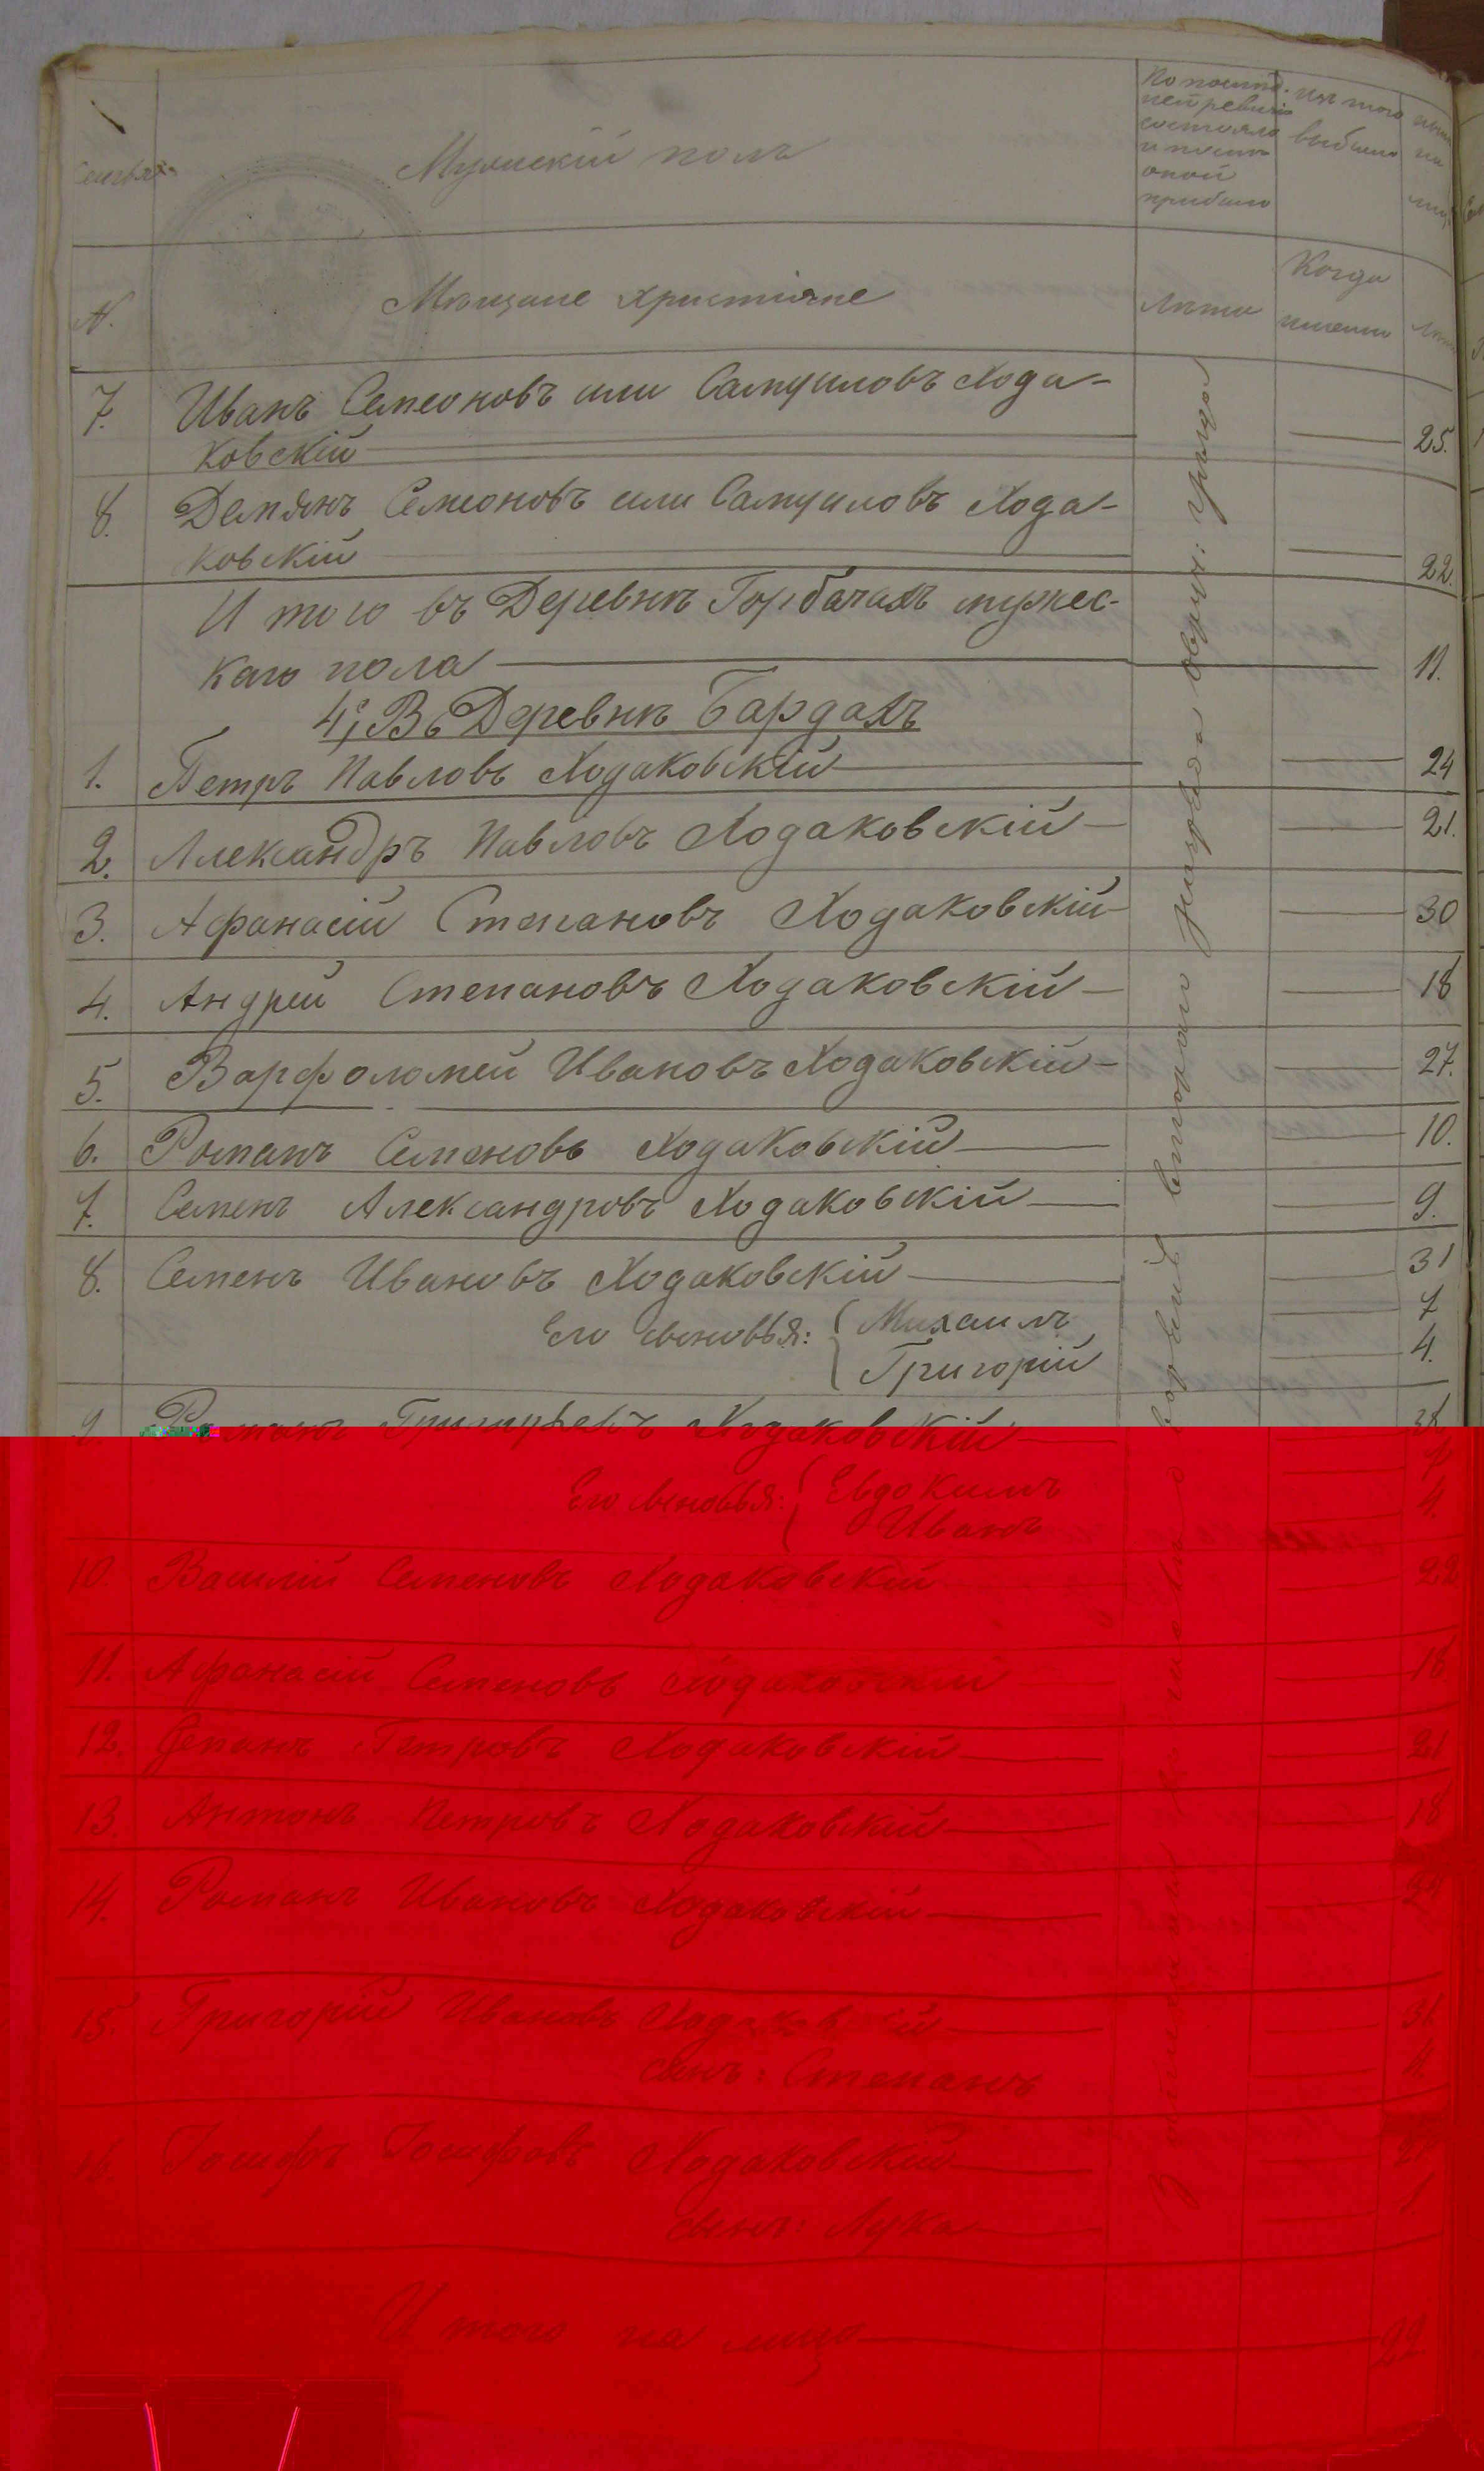 Семьях
Мужескій полъ
По послѣд-
ней ревизіи
состояло
и послѣ
оной
прибыло
изъ того
выбыло
на
№.
Мѣщане христіяне
Лѣта
Когда
именно
7. Иванъ Семеоновъ или Самуиловъ Хода-
ковскій 25.
8. Демянъ Семеоновъ или Самуиловъ Хода-
ковскій 22.
И того въ Деревнѣ Горбачахъ мужес-
каго пола 11.
4е, Въ Деревнѣ Бардахъ
1. Петръ Павловъ Ходаковскій 24
2. Александръ Павловъ Ходаковскій 21.
3. Афанасій Степановъ Ходаковскій 30
4. Андрей Степановъ Ходаковскій 18
5. Варфоломей Ивановъ Ходаковскій 27.
6. Романъ Семеновъ Ходаковскій 10.
7. Семенъ Александровъ Ходаковскій 9.
8. Семенъ Ивановъ Ходаковскій 31
Его сыновья: Михаилъ 7
Григорій 4.
9. Романъ Григорьевъ Ходаковскій
Его сыновья: Евдокимъ 7
Иванъ 4.
10. Василій Семеновъ Ходаковскій 22
11. Афанасій Семеновъ Ходаковскій 18
12. Степанъ Петровъ Ходаковскій 21
13. Антонъ Петровъ Ходаковскій 18
14. Романъ Ивановъ Ходаковскій 34
15. Григорій Ивановъ Ходаковскій 36
сынъ: Степанъ 4
16. Іосифъ Іосифовъ Ходаковскій
сынъ: Лука 1
И того на лицо 22